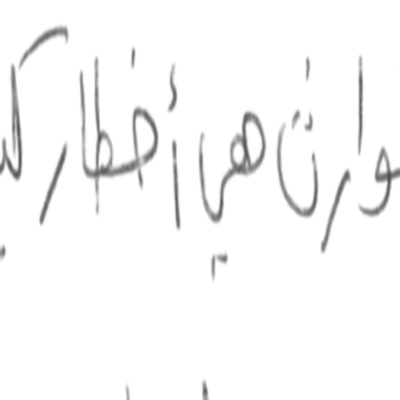 وارث هي أخطار كبي